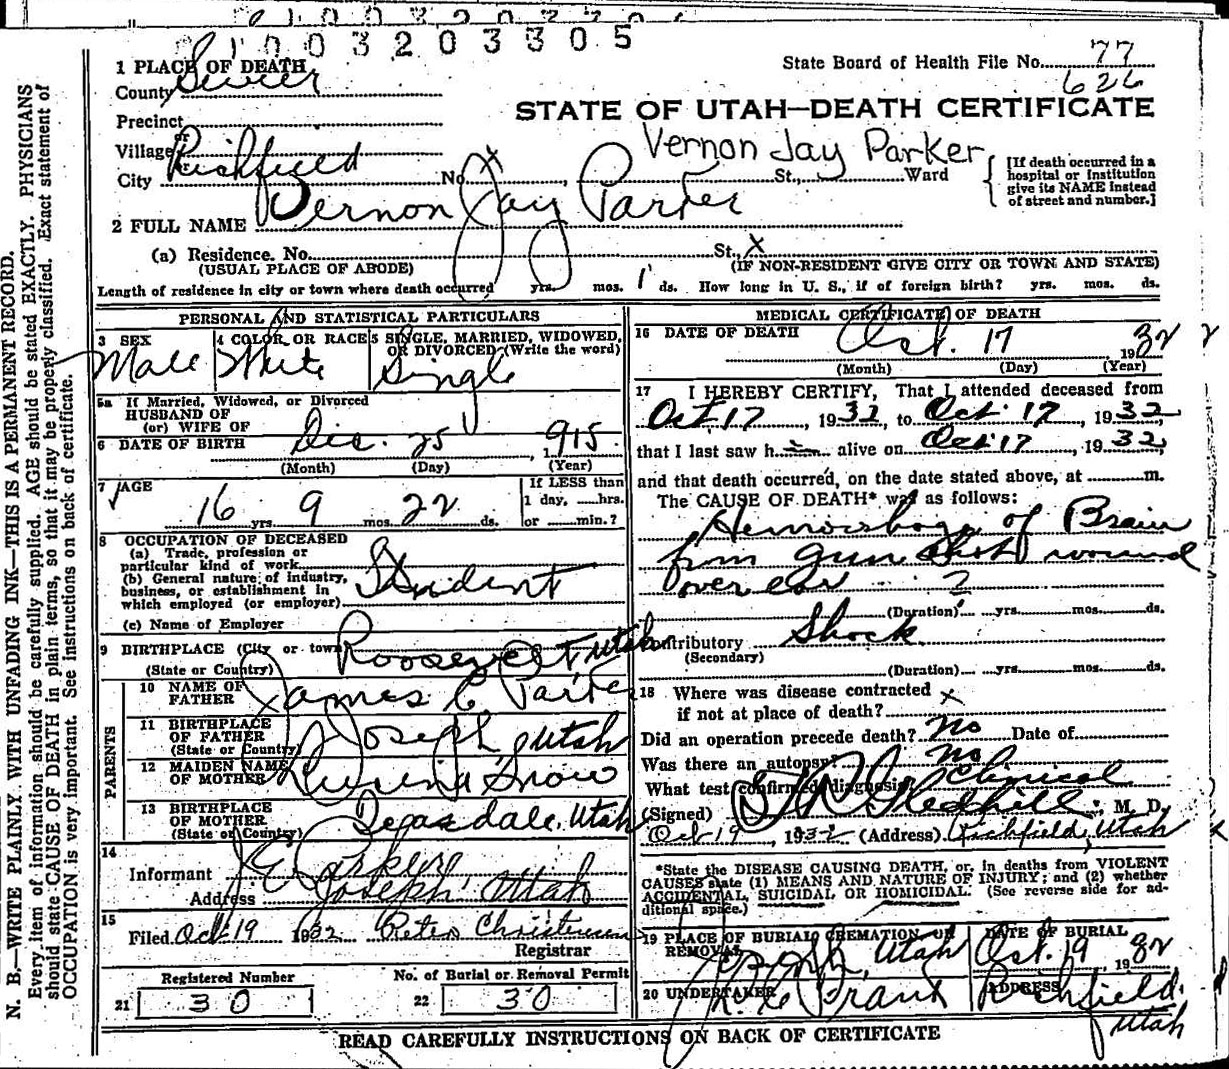 1003203305
1 PLACE OF DEATH
State Board of Health File No. 77
626
County Sevier
STATE OF UTAH—DEATH CERTIFICATE
Precinct
or
Village
Vernon Jay Parker
City Richfield No. x St., Ward
[If death occurred in a hospital or institution give its NAME instead of street and number.]
2 FULL NAME Vernon Jay Parker
(a) Residence. No. St., x
(USUAL PLACE OF ABODE) (IF NON-RESIDENT GIVE CITY OR TOWN AND STATE)
Length of residence in city or town where death occurred yrs. mos. 1 ds. How long in U. S., if of foreign birth? yrs. mos. ds.
PERSONAL AND STATISTICAL PARTICULARS
3 SEX 4 COLOR OR RACE 5 SINGLE, MARRIED, WIDOWED, OR DIVORCED (Write the word)
Male White Single
5a If Married, Widowed, or Divorced
HUSBAND OF
(or) WIFE OF
6 DATE OF BIRTH Dec. 25, 1915.
(Month) (Day) (Year)
7 AGE If LESS than
1 day, hrs.
16 yrs. 9 mos. 22 ds. or min.?
8 OCCUPATION OF DECEASED
(a) Trade, profession or
particular kind of work
(b) General nature of industry,
business, or establishment in
which employed (or employer) Student
(c) Name of Employer
9 BIRTHPLACE (City or town) Roosevelt Utah
(State or Country)
PARENTS
10 NAME OF
FATHER James E Parker
11 BIRTHPLACE
OF FATHER Joseph, Utah
(State or Country)
12 MAIDEN NAME
OF MOTHER Snow
13 BIRTHPLACE
OF MOTHER Teasdale, Utah
(State or Country)
14
Informant J E Parker
Address Joseph Utah
15
Filed Oct 19 1932 Peter Christensen
Registrar
Registered Number No. of Burial or Removal Permit
21 30 22 30
MEDICAL CERTIFICATE OF DEATH
16 DATE OF DEATH Oct. 17, 1932
(Month) (Day) (Year)
17 I HEREBY CERTIFY, That I attended deceased from
Oct 17, 1932, to Oct. 17, 1932,
that I last saw h im alive on Oct 17, 1932,
and that death occurred, on the date stated above, at m.
The CAUSE OF DEATH* was as follows:
Hemorrhage of Brain
from gun shot wound
over ear ?
(Duration) yrs. mos. ds.
Contributory Shock
(Secondary)
(Duration) yrs. mos. ds.
18 Where was disease contracted
if not at place of death? x
Did an operation precede death? no Date of
Was there an autopsy? no
What test confirmed diagnosis? Clinical
(Signed) Gledhill, M. D.
Oct 19, 1932 (Address) Richfield, Utah
*State the DISEASE CAUSING DEATH, or, in deaths from VIOLENT
CAUSES state (1) MEANS AND NATURE OF INJURY; and (2) whether
ACCIDENTAL, SUICIDAL OR HOMICIDAL. (See reverse side for ad-
ditional space.)
19 PLACE OF BURIAL, CREMATION OR REMOVAL DATE OF BURIAL
Joseph, Utah Oct. 19, 1932
20 UNDERTAKER ADDRESS
Richfield.
Utah
READ CAREFULLY INSTRUCTIONS ON BACK OF CERTIFICATE
N. B.—WRITE PLAINLY, WITH UNFADING INK—THIS IS A PERMANENT RECORD.
Every item of information should be carefully supplied. AGE should be stated EXACTLY. PHYSICIANS
should state CAUSE OF DEATH in plain terms, so that it may be properly classified. Exact statement of
OCCUPATION is very important. See instructions on back of certificate.